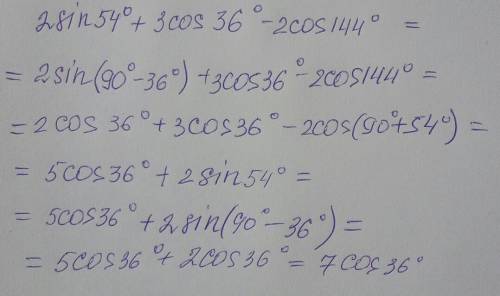 2sin54° + 3cos36° - 2cos144° =
= 2sin(90° - 36°) + 3cos36° - 2cos144° =
= 2cos36° + 3cos36° - 2cos(90° + 54°) =
= 5cos36° + 2sin54° =
= 5cos36° + 2sin(90° - 36°) =
= 5cos36° + 2cos36° = 7cos36°